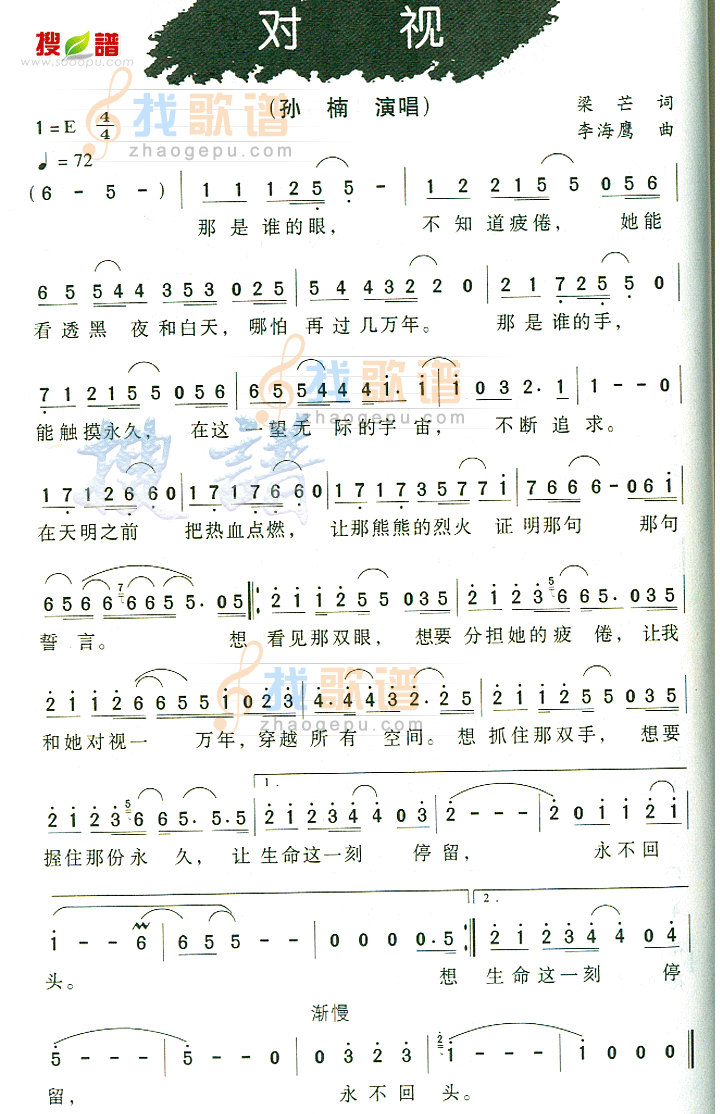 搜谱
www.sooopu.com
对 视
(孙 楠 演唱)
梁 芒 词
李海鹰 曲
1=E 4/4
♩=72
找歌谱
zhaogepu.com
(6 - 5 -) 1 1 1 2 5 5 - 1 2 2 1 5 5 0 5 6
那 是 谁的眼， 不 知 道疲倦， 她能
6 5 5 4 4 3 5 3 0 2 5 5 4 4 3 2 2 0 2 1 7 2 5 5 0
看 透 黑 夜 和白天， 哪怕 再 过 几万年。 那 是 谁的 手，
找歌谱
zhaogepu.com
7 1 2 1 5 5 0 5 6 6 5 5 4 4 1· 1 1 0 3 2· 1 1 - - 0
能触摸永久， 在这 一望无 际的宇 宙， 不断 追 求。
搜譜
1 7 1 2 6 6 0 1 7 1 7 6 6 0 1 7 1 7 3 5 7 7 1 7 6 6 6 - 0 6 1
在天明之前 把热血点燃， 让那熊熊的烈火 证 明那句 那句
6 5 6 6 7 6 6 5 5· 0 5 2 1 1 2 5 5 0 3 5 2 1 2 3 5 6 6 5· 0 3 5
誓 言。 想 看见那双眼， 想要 分担她的疲 倦，让我
找歌谱
zhaogepu.com
2 1 2 1 2 6 6 5 5 1 0 2 3 4· 4 4 3 2· 2 5 2 1 1 2 5 5 0 3 5
和她对视一 万年，穿越 所 有 空间。想 抓住那双手， 想要
1.
2 1 2 3 5 6 6 5· 5· 5 2 1 2 3 4 4 0 3 2 - - - 2 0 1 1 2 1
握住那份永 久， 让 生命这一刻 停 留， 永不回
2.
1 - - 6 6 5 5 - - 0 0 0 0· 5 2 1 2 3 4 4 0 4
头。 想 生命这一刻 停
渐慢
5 - - - 5 - - 0 0 0 3 2 3 2 1 - - - 1 0 0 0
留， 永 不回 头。